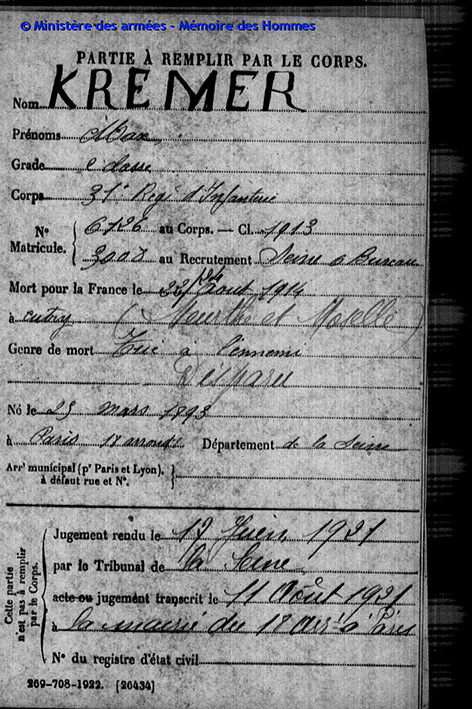 © Ministère des armées - Mémoire des Hommes
PARTIE À REMPLIR PAR LE CORPS.
Nom KREMER
Prénoms Max
Grade 2 classe
Corps 31e Regt d'Infanterie
N° Matricule. { 6726 au Corps. — Cl. 1913
au Recrutement Seine 2 Bureau
Mort pour la France le 22 Août 1914
à Cutry (Meurthe et Moselle)
Genre de mort Tué à l'ennemi
Disparu
Né le 23 mars 1893
à Paris arrondt Département de la Seine
Arrt municipal (pr Paris et Lyon),
à défaut rue et N°.
Cette partie n'est pas à remplir par le Corps.
Jugement rendu le 17 Juin 1921
par le Tribunal de la Seine
acte ou jugement transcrit le 11 Août 1921
à la mairie du arrt à Paris
N° du registre d'état civil
269-708-1922. [26434]